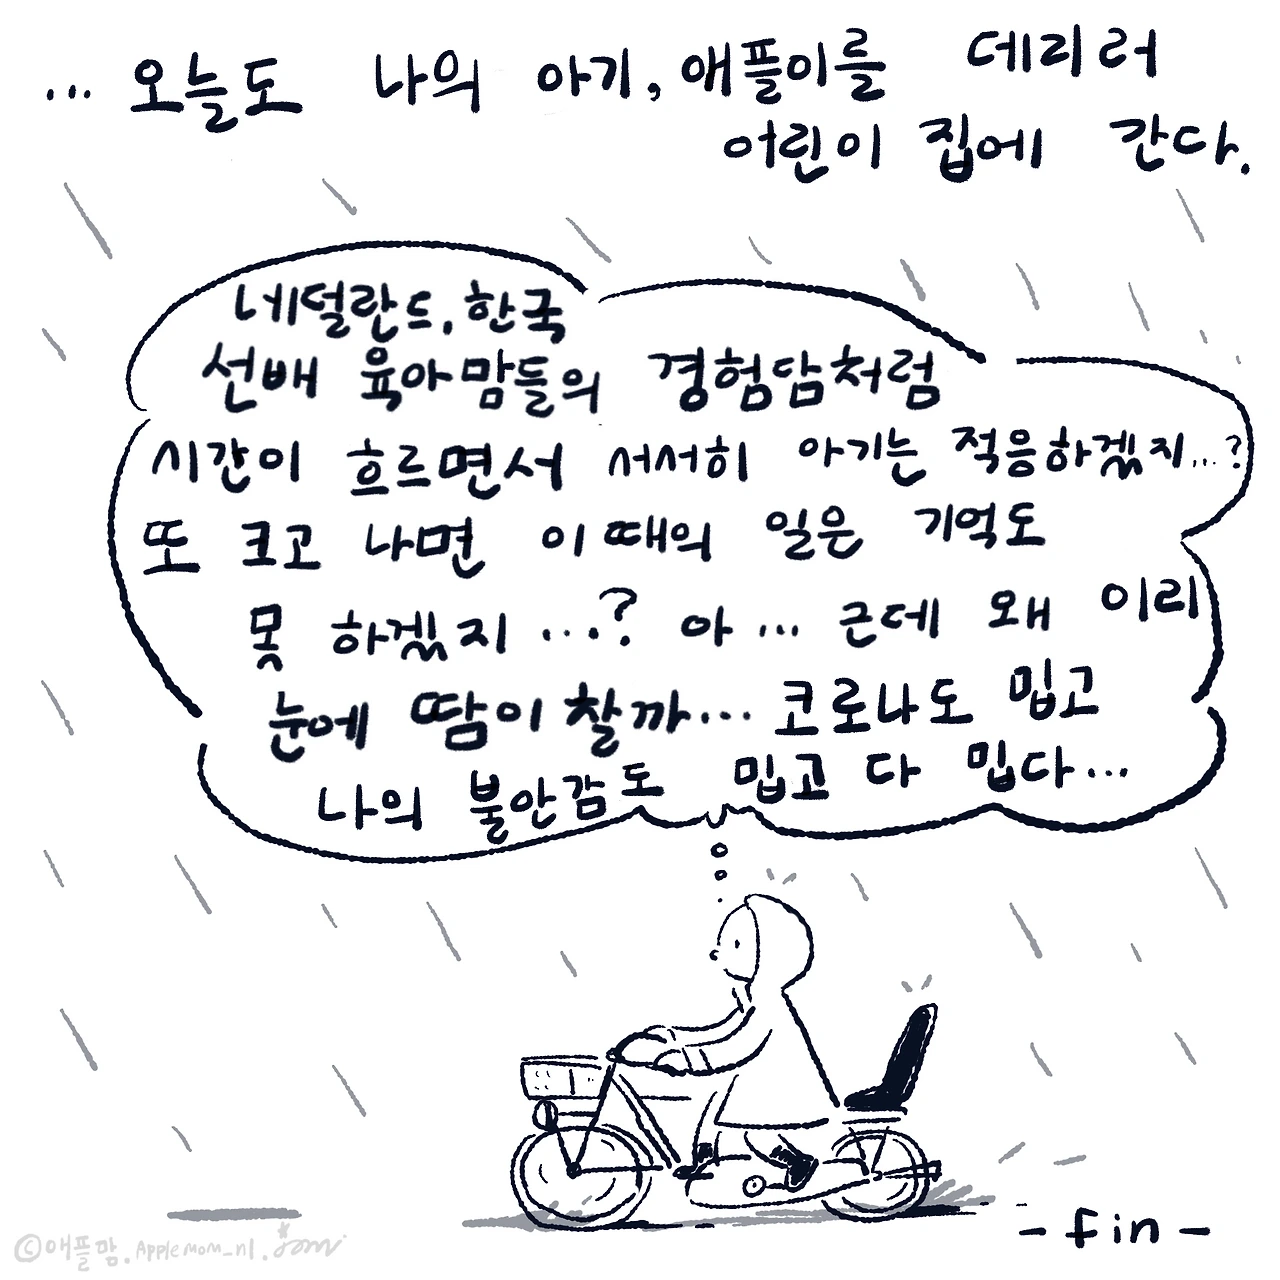 ... 오늘도 나의 아기, 애플이를 데리러
어린이 집에 간다.
네덜란드, 한국
선배 육아맘들의 경험담처럼
시간이 흐르면서 서서히 아기는 적응하겠지...?
또 크고 나면 이때의 일은 기억도
못 하겠지...? 아... 근데 왜 이리
눈에 땀이 찰까... 코로나도 밉고
나의 불안감도 밉고 다 밉다...
- fin -
©애플맘. Applemom_nl.